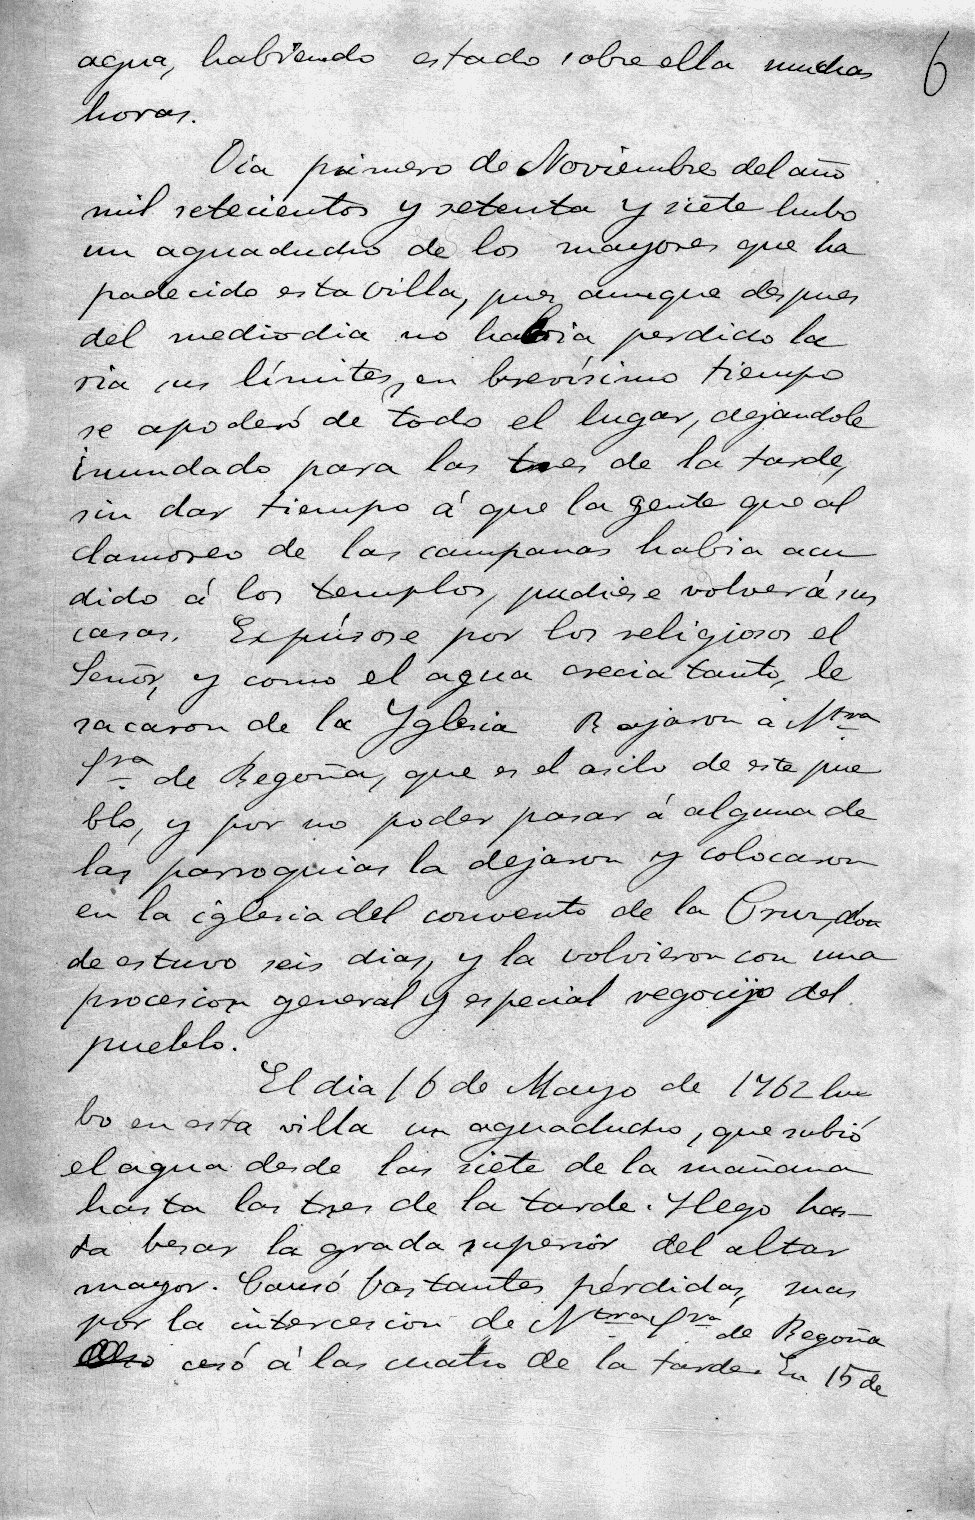 6
agua, habiendo estado sobre ella muchas
horas.
Dia primero de Noviembre del año
mil setecientos y setenta y siete hubo
un aguaducho de los mayores que ha
padecido esta villa, pues aunque despues
del mediodia no habia perdido la
ria sus límites, en brevísimo tiempo
se apoderó de todo el lugar, dejandole
inundado para las tres de la tarde,
sin dar tiempo á que la gente que al
clamoreo de las campanas habia acu
dido á los templos, pudiese volver á sus
casas. Expúsose por los religiosos el
Señor, y como el agua crecia tanto, le
sacaron de la Yglesia Bajaron á Ntra
Sra de Begoña, que es el asilo de este pue
blo, y por no poder pasar á alguna de
las parroquias la dejaron y colocaron
en la iglesia del convento de la Cruz, don
de estuvo seis dias, y la volvieron con una
procesion general y especial regocijo del
pueblo.
El dia 16 de Mayo de 1762 hu
bo en esta villa un aguaducho, que subió
el agua desde las siete de la mañana
hasta las tres de la tarde. Llegó has-
ta besar la grada superior del altar
mayor. Causó bastantes pérdidas, mas
por la intercesion de Ntra Sra de Begoña
cesó á las cuatro de la tarde. En 15 de